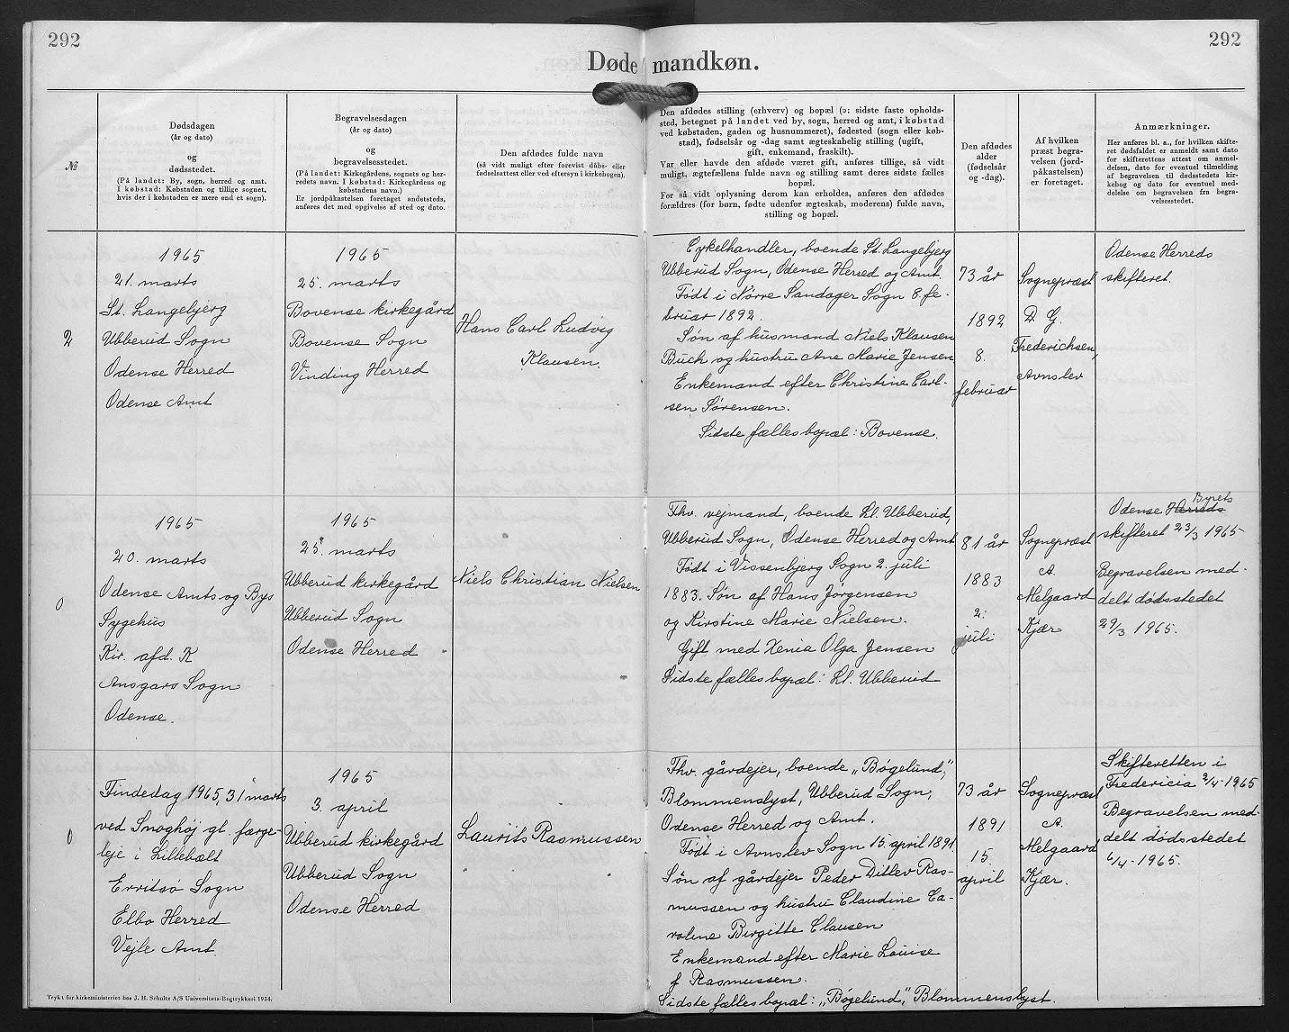 292
292
Døde mandkøn.
№
Dødsdagen
(år og dato)
og
dødsstedet.
(På landet: By, sogn, herred og amt.
I købstad: Købstaden og tillige sognet,
hvis der i købstaden er mere end et sogn).
Begravelsesdagen
(år og dato)
og
begravelsesstedet.
(På landet: Kirkegårdens, sognets og her-
redets navn. I købstad: Kirkegårdens og
købstadens navn.)
Er jordpåkastelsen foretaget andetsteds,
anføres det med opgivelse af sted og dato.
Den afdødes fulde navn
(så vidt muligt efter forevist dåbs- eller
fødselsattest eller ved eftersyn i kirkebogen).
Den afdødes stilling (erhverv) og bopæl (ɔ: sidste faste opholds-
sted, betegnet på landet ved by, sogn, herred og amt, i købstad
ved købstaden, gaden og husnummeret), fødested (sogn eller køb-
stad), fødselsår og -dag samt ægteskabelig stilling (ugift,
gift, enkemand, fraskilt).
Var eller havde den afdøde været gift, anføres tillige, så vidt
muligt, ægtefællens fulde navn og stilling samt deres sidste fælles
bopæl.
For så vidt oplysning derom kan erholdes, anføres den afdødes
forældres (for børn, fødte udenfor ægteskab, moderens) fulde navn,
stilling og bopæl.
Den afdødes
alder
(fødselsår
og -dag).
Af hvilken
præst begra-
velsen (jord-
påkastelsen)
er foretaget.
Anmærkninger.
Her anføres bl. a., for hvilken skifte-
ret dødsfaldet er anmeldt samt dato
for skifterettens attest om anmel-
delsen, dato for eventuel tilmelding
af begravelsen til dødsstedets kir-
kebog og dato for eventuel med-
delelse om begravelsen fra begra-
velsesstedet.
2
1965
21. marts
St. Langebjerg
Ubberud Sogn
Odense Herred
Odense Amt
1965
25. marts
Bovense kirkegård
Bovense Sogn
Vinding Herred
Hans Carl Ludvig
Klausen.
Cykelhandler, boende St. Langebjerg
Ubberud Sogn, Odense Herred og Amt.
Født i Nørre Sandager Sogn 8. fe-
bruar 1892.
Søn af husmand Niels Klausen
Buch og hustru Ane Marie Jensen
Enkemand efter Christine Carl-
sen Sørensen.
Sidste fælles bopæl: Bovense.
73 år
1892
8.
februar
Sognepræst
D. G.
Frederichsen,
Avnslev
Odense Herreds
skifteret.
0
1965
20. marts
Odense Amts og Bys
Sygehus
Kir. afd. K
Ansgars Sogn
Odense.
1965
25. marts
Ubberud kirkegård
Ubberud Sogn
Odense Herred
Niels Christian Nielsen
Fhv. vejmand, boende Ll. Ubberud,
Ubberud Sogn, Odense Herred og Amt
Født i Vissenbjerg Sogn 2. juli
1883. Søn af Hans Jørgensen
og Kirstine Marie Nielsen.
Gift med Xenia Olga Jensen
Sidste fælles bopæl: Ll. Ubberud
81 år
1883
2.
juli
Sognepræst
A.
Melgaard
Kjær
Byrets
Odense Herreds
skifteret 23/3 1965
Begravelsen med-
delt dødsstedet
29/3 1965.
0
Findedag 1965, 31 marts
ved Snoghøj gl. færge-
leje i Lillebælt
Erritsø Sogn
Elbo Herred
Vejle Amt.
1965
3. april
Ubberud kirkegård
Ubberud Sogn
Odense Herred
Laurits Rasmussen
Fhv. gårdejer, boende „Bøgelund,"
Blommenslyst, Ubberud Sogn,
Odense Herred og Amt.
Født i Avnslev Sogn 15. april 1891.
Søn af gårdejer Peder Ditlev Ras-
mussen og hustru Claudine Ca-
roline Birgitte Clausen
Enkemand efter Marie Louise
f. Rasmussen.
Sidste fælles bopæl: „Bøgelund," Blommenslyst.
73 år
1891
15.
april
Sognepræst
A.
Melgaard
Kjær.
Skifteretten i
Fredericia 2/4-1965
Begravelsen med-
delt dødsstedet
6/4-1965.
Trykt for kirkeministeriet hos J. H. Schultz A/S Universitets-Bogtrykkeri 1954.